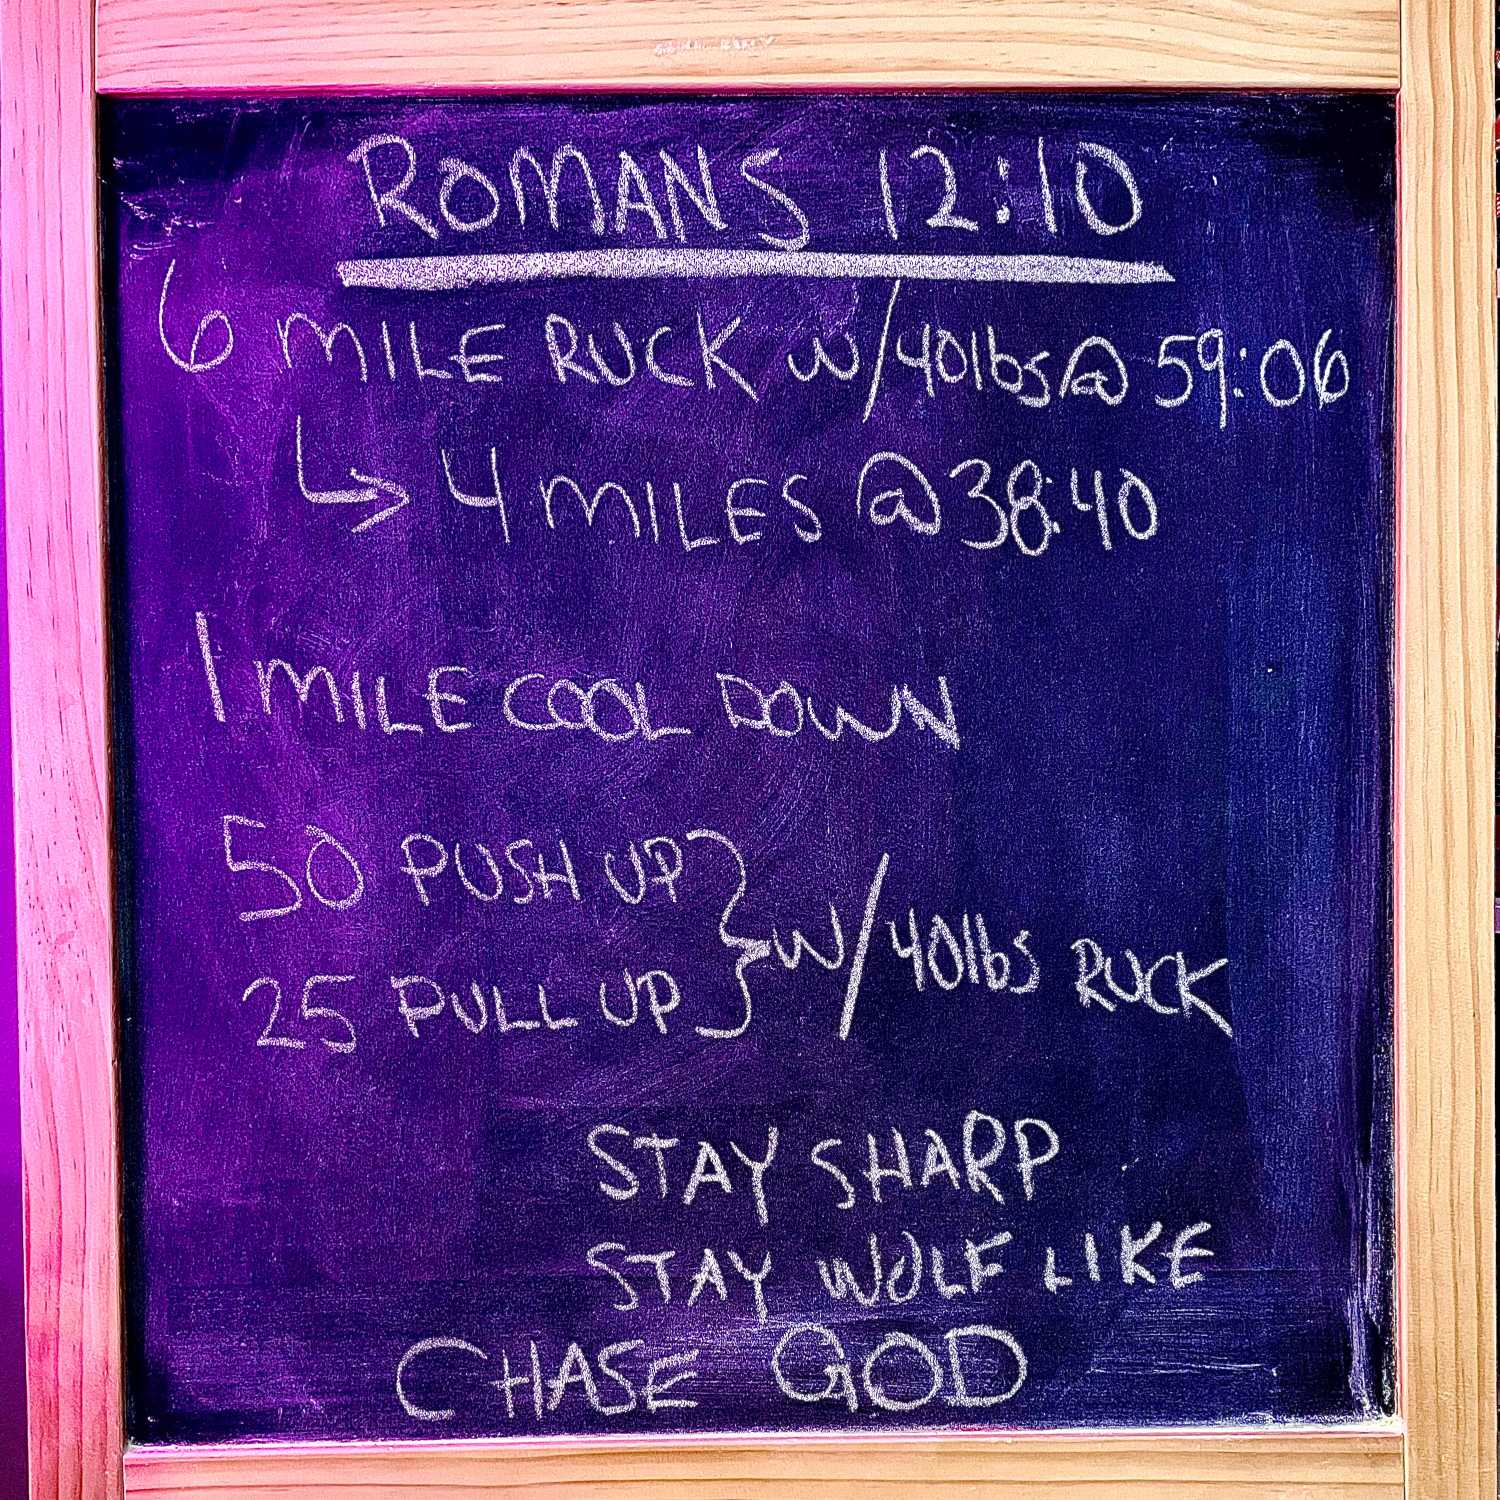 ROMANS 12:10
6 MILE RUCK W/40lbs@ 59:06
↳ 4 MILES @38:40
1 MILE COOL DOWN
50 PUSH UP
25 PULL UP } W/40lbs RUCK
STAY SHARP
STAY WOLF LIKE
CHASE GOD